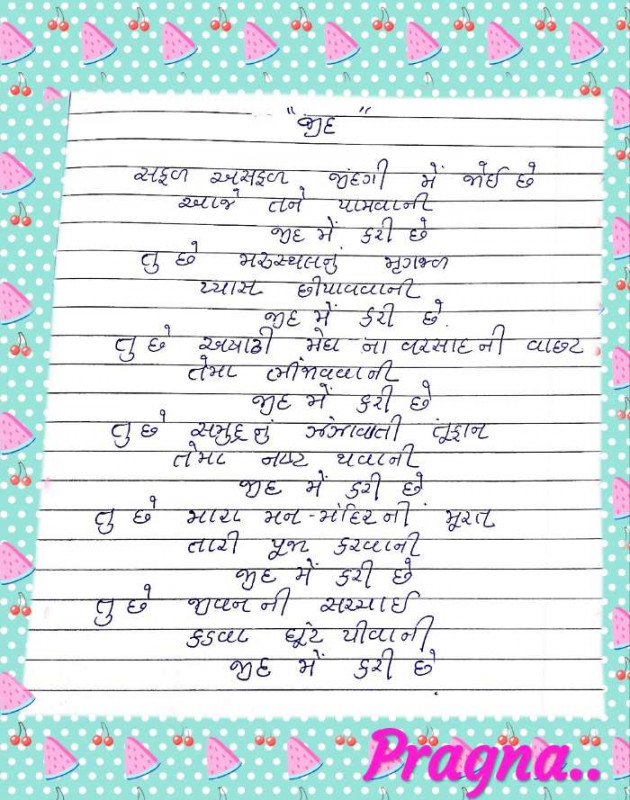 "જીદ"
સફળ અસફળ જીંદગી મેં જોઈ છે
આજે તને પામવાની
જીદ મેં કરી છે
તુ છે મરુસ્થલનું મૃગજળ
પ્યાસ છીપાવવાની
જીદ મેં કરી છે
તુ છે અષાઢી મેઘ ના વરસાદ ની વાછટ
તેમા ભીંજાવવાની
જીદ મેં કરી છે
તુ છે સમુદ્ર નું ઝંઝાવાતી તૂફાન
તેમા નષ્ટ થવાની
જીદ મેં કરી છે
તુ છે મારા મન-મંદિર ની મૂરત
તારી પૂજા કરવાની
જીદ મેં કરી છે
તુ છે જીવન ની સચ્ચાઈ
કડવા ઘૂંટ પીવાની
જીદ મેં કરી છે
Pragna..